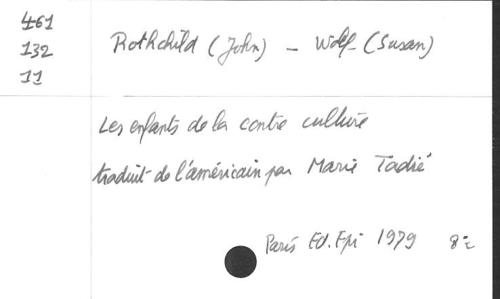 461
132
11
Rothchild (John) - Wolf (Susan)
Les enfants de la contre culture
traduit de l'américain par Marie Tadié
Paris Ed. Epi 1979 8°